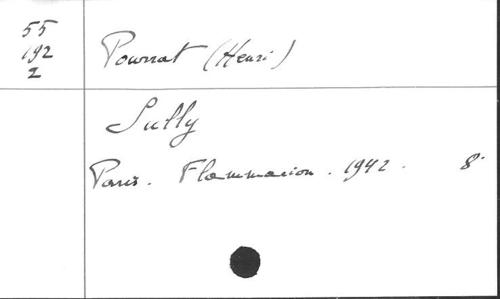 55
192
2
Pourrat (Henri)
Sully
Paris. Flammarion. 1942. 8°